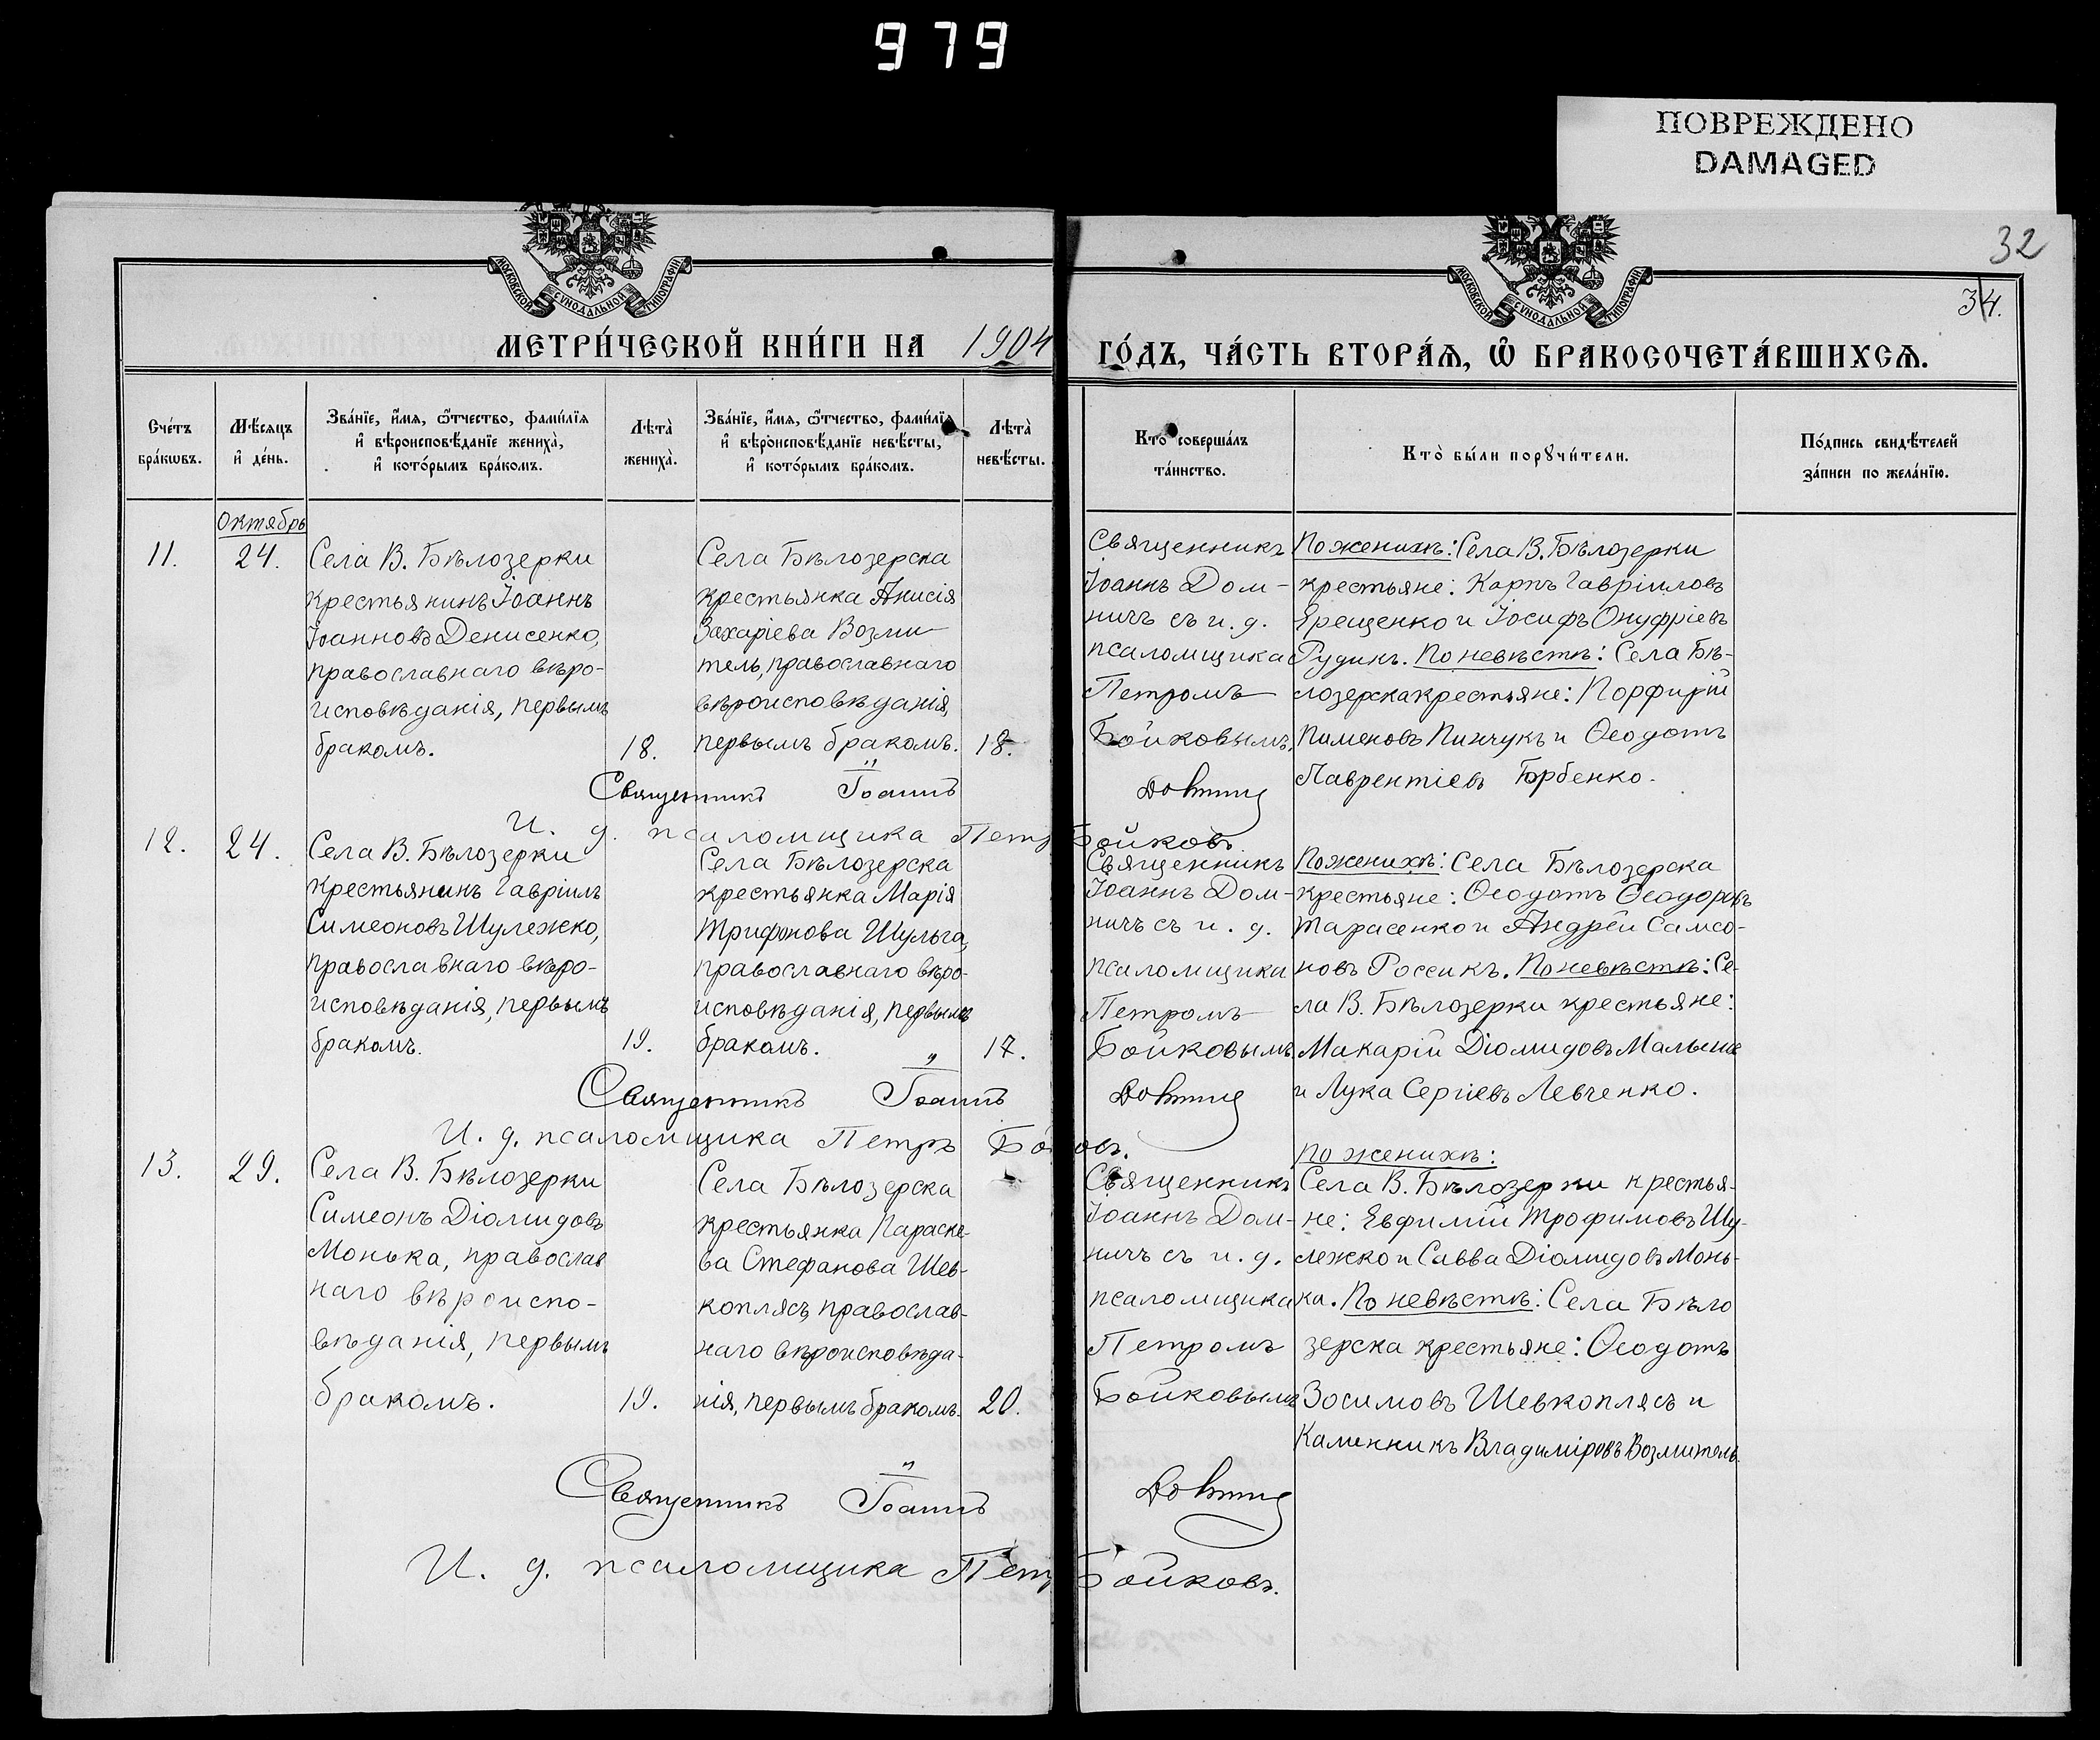 979
ПОВРЕЖДЕНО
DAMAGED
32
34.
МОСКОВСКОЙ СѴНОДАЛЬНОЙ ТИПОГРАФІИ
МОСКОВСКОЙ СѴНОДАЛЬНОЙ ТИПОГРАФІИ
МЕТРИ́ЧЕСКОЙ КНИ́ГИ НА 1904
ГО́ДЪ, ЧА́СТЬ ВТОРА́Ѧ, Ѿ БРАКОСОЧЕТА́ВШИХСѦ.
Сче́тъ
бра́кѡвъ.
Мѣ́сяцъ
и҆ де́нь.
Зва́нїе, и҆́мѧ, ѻ҆́тчество, фами́лїѧ
и҆ вѣроисповѣ́данїе жениха̀,
и҆ кото́рымъ бра́комъ.
Лѣта̀
жениха̀.
Зва́нїе, и҆́мѧ, ѻ҆́тчество, фами́лїѧ
и҆ вѣроисповѣ́данїе невѣ́сты,
и҆ кото́рымъ бра́комъ.
Лѣта̀
невѣ́сты.
Кто̀ соверша́лъ
та́инство.
Кто̀ бы́ли порꙋчи́тели.
По́дпись свидѣ́телей
за́писи по жела́нїю.
Октябрь
11.
24.
Села В. Бѣлозерки
крестьянинъ Іоаннъ
Іоанновъ Денисенко,
православнаго вѣро-
исповѣданія, первымъ
бракомъ.
18.
Села Бѣлозерска
крестьянка Анисія
Захаріева Возми-
тель, православнаго
вѣроисповѣданія,
первымъ бракомъ.
18.
Священникъ
Іоаннъ Дом-
ничъ съ и. д.
псаломщика
Петромъ
Бойковымъ.
По женихѣ: Села В. Бѣлозерки
крестьяне: Карпъ Гавріиловъ
Ерещенко и Іосифъ Онуфріевъ
Рудикъ. По невѣстѣ: Села Бѣ-
лозерска крестьяне: Порфирій
Пименовъ Пинчукъ и Ѳеодотъ
Лаврентіевъ Горбенко.
Священникъ Іоаннъ Домничъ
И. д. псаломщика Петръ Бойковъ
12.
24.
Села В. Бѣлозерки
крестьянинъ Гавріилъ
Симеоновъ Шулежко,
православнаго вѣро-
исповѣданія, первымъ
бракомъ.
19.
Села Бѣлозерска
крестьянка Марія
Трифонова Шульга,
православнаго вѣро-
исповѣданія, первымъ
бракомъ.
17.
Священникъ
Іоаннъ Дом-
ничъ съ и. д.
псаломщика
Петромъ
Бойковымъ.
По женихѣ: Села Бѣлозерска
крестьяне: Ѳеодотъ Ѳеодоровъ
Тарасенко и Андрей Самсо-
новъ Россикъ. По невѣстѣ: Се-
ла В. Бѣлозерки крестьяне:
Макарій Діомидовъ
и Лука Сергіевъ Левченко.
Священникъ Іоаннъ Домничъ
И. д. псаломщика Петръ Бойковъ.
13.
29.
Села В. Бѣлозерки
Симеонъ Діомидовъ
Монька, православ
наго вѣроиспо-
вѣданія, первымъ
бракомъ.
19.
Села Бѣлозерска
крестьянка Параске-
ва Стефанова Шев-
коплясъ, православ-
наго вѣроисповѣда-
нія, первымъ бракомъ.
20.
Священникъ
Іоаннъ Дом-
ничъ съ и. д.
псаломщика
Петромъ
Бойковымъ
По женихѣ:
Села В. Бѣлозерки крестья-
не: Евфимій Трофимовъ Шу-
лежко и Савва Діомидовъ Монь-
ка. По невѣстѣ: Села Бѣло
зерска крестьяне: Ѳеодотъ
Зосимовъ Шевкоплясъ и
Каминникъ Владиміровъ Возмитель.
Священникъ Іоаннъ Домничъ
И. д. псаломщика Петръ Бойковъ.